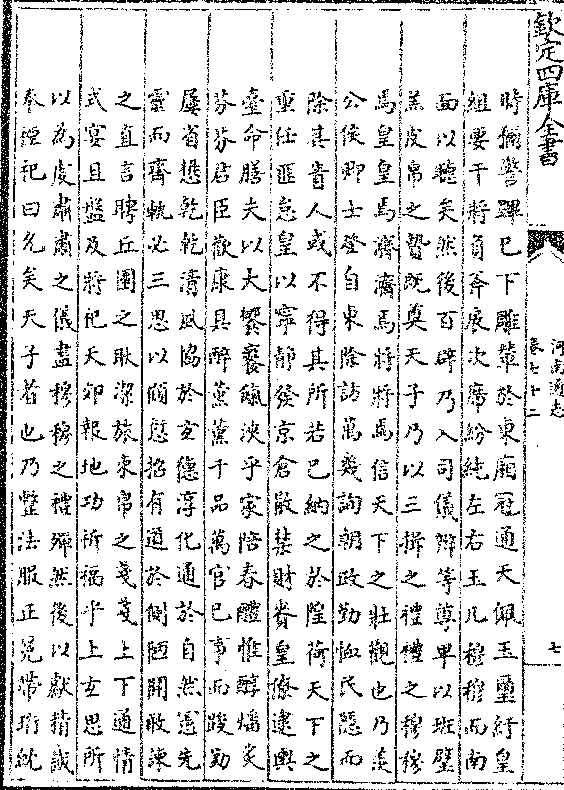 欽定四庫全書
河南通志
卷七十二
七
時稱警蹕已下雕輦於東廂冠通天佩玉璽紆皇
組要干將負斧扆次席紛純左右玉几穆穆而南
面以聽矣然後百辟乃入司儀辨等尊卑以班璧
羔皮帛之贄既奠天子乃以三揖之禮禮之穆穆
焉皇皇焉濟濟焉將將焉信天下之壯觀也乃羨
公侯卿士登自東除訪萬幾詢朝政勤恤民隱而
除其眚人或不得其所若己納之於隍荷天下之
重任匪怠皇以寧靜發京倉散禁財賚皇僚逮輿
臺命膳夫以大饗饔餼浹乎家陪春醴惟醇燔炙
芬芬君臣歡康具醉薰薰千品萬官已事而踆勤
屢省懋乾乾清風協於玄德淳化通於自然憲先
靈而齊軌必三思以顧愆招有道於側陋開敢諫
之直言聘丘園之耿潔旅束帛之戔戔上下通情
式宴且盤及將祀天郊報地功祈福乎上玄思所
以為虔肅肅之儀盡穆穆之禮殫然後以獻精誠
奉禋祀曰允矣天子者也乃整法服正冕帶珩紞